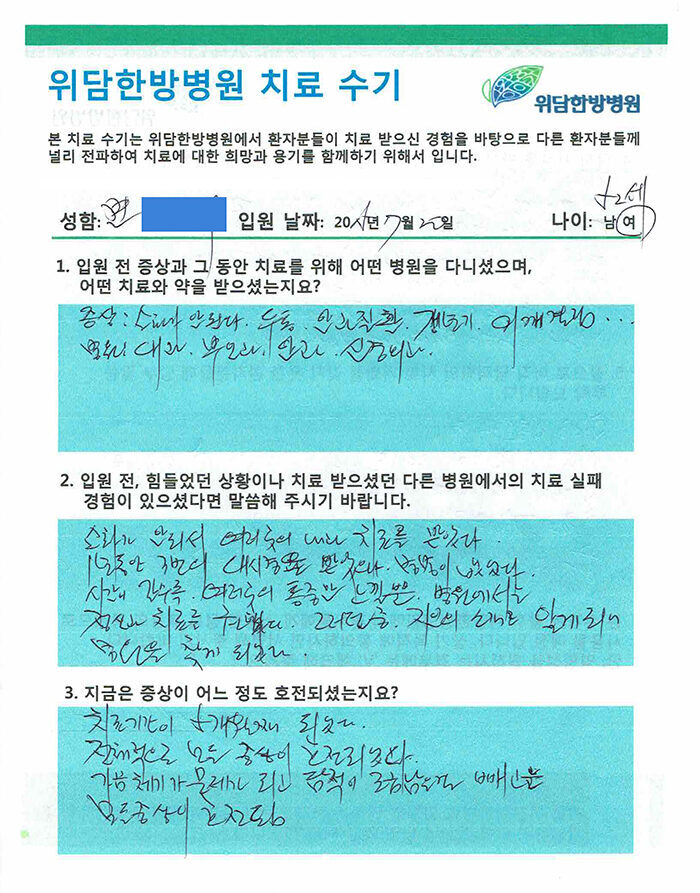 위담한방병원 치료 수기
위담한방병원
본 치료 수기는 위담한방병원에서 환자분들이 치료 받으신 경험을 바탕으로 다른 환자분들께
널리 전파하여 치료에 대한 희망과 용기를 함께하기 위해서 입니다.
성함: 입원 날짜: 20 년 7월 20일 나이: 남/여
1. 입원 전 증상과 그 동안 치료를 위해 어떤 병원을 다니셨으며,
어떤 치료와 약을 받으셨는지요?
증상: 소화가 안된다. 두통. 안과질환. 어깨결림...
병원: 내과. 부인과. 안과. 신경내과.
2. 입원 전, 힘들었던 상황이나 치료 받으셨던 다른 병원에서의 치료 실패
경험이 있으셨다면 말씀해 주시기 바랍니다.
소화가 안되서 여러곳의 내과 치료를 받았다.
1년동안 3번의 내시경을 받았으나 병명이 났았다.
시간이 갈수록 여러곳의 통증만 느낄뿐. 병원에서는
정신과 치료를 권했다. 그러던 중. 지인의 소개로 알게되어
병원을 찾게 되었다.
3. 지금은 증상이 어느 정도 호전되셨는지요?
치료기간이 개월째 되었다.
전체적으로 모든 증상이 호전되었다.
가끔 체기가 문제가 되고 담적이 조금남은걸 빼고는
모든증상이 호전됨